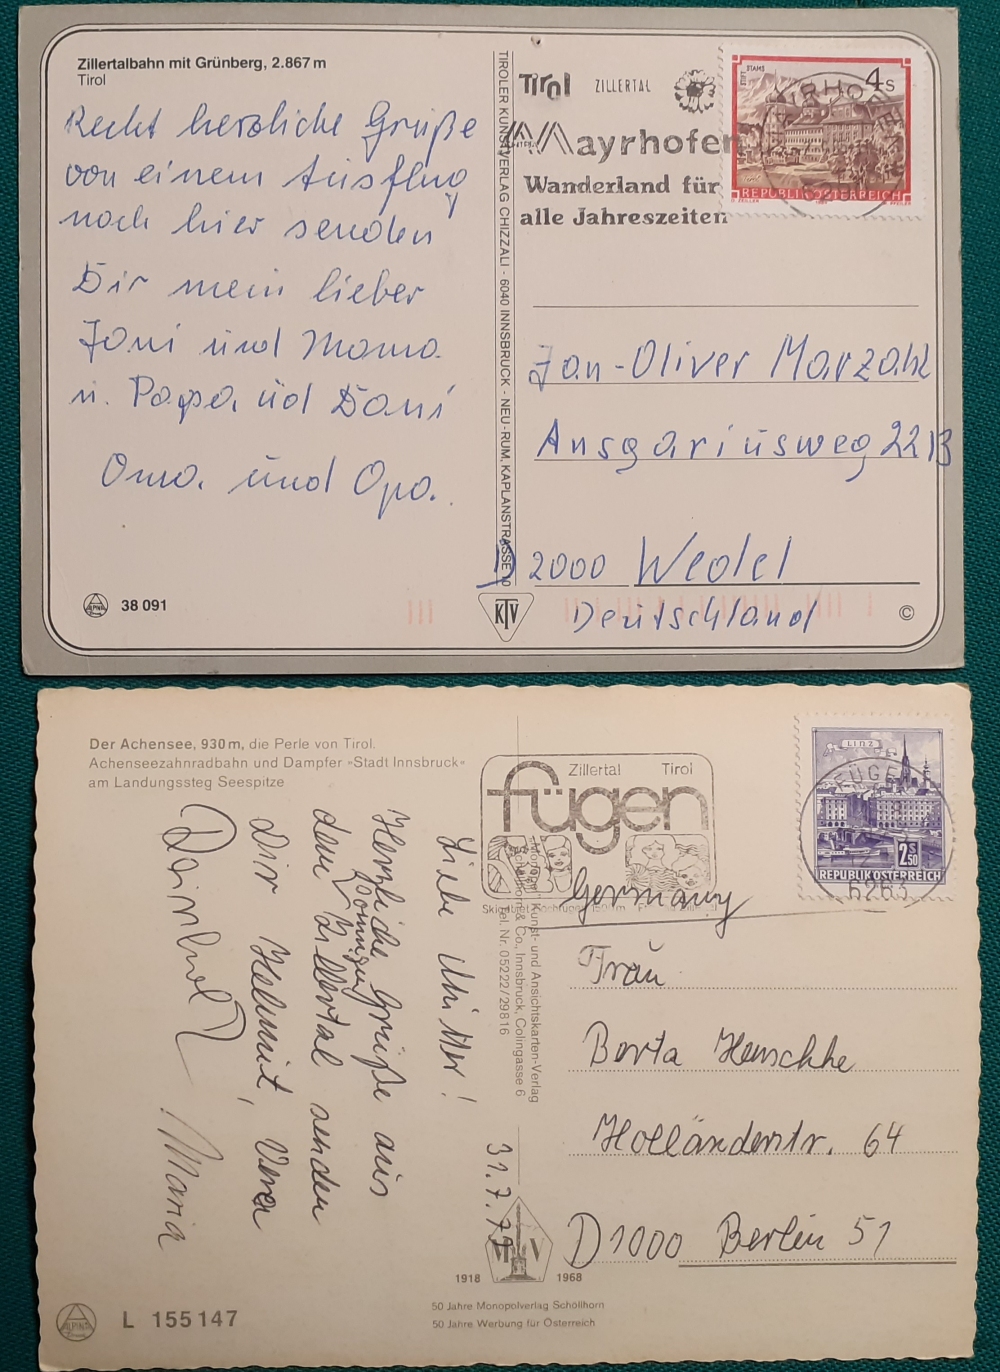 Zillertalbahn mit Grünberg, 2.867 m
Tirol
Recht herzliche Grüße
von einem Ausflug
noch hier senden
Dir mein lieber
Jani und Mama
u. Papa, üd Dani
Oma. und Opa.
38 091
TIROLER KUNSTVERLAG CHIZZALI - 6040 INNSBRUCK - NEU-RUM, KAPLANSTRASSE
KTV
Tirol ZILLERTAL
Mayrhofen
Wanderland für
alle Jahreszeiten
STAMS
4 S
REPUBLIK ÖSTERREICH
Jan-Oliver Marzahl
Ansgariusweg 22 B
D 2000 Wedel
Deutschland
©
Der Achensee, 930 m, die Perle von Tirol.
Achenseezahnradbahn und Dampfer »Stadt Innsbruck«
am Landungssteg Seespitze
Liebe Mutter!
Herzliche Grüße aus
dem sonnigen Zillertal senden
Dir Helmut, Vera
Reinhold Maria
31.7.79
Kunst- und Ansichtskarten-Verlag
& Co., Innsbruck, Colingasse 6
Tel. Nr. 05222/29816
Zillertal Tirol
fügen
LINZ
2 S 50
REPUBLIK ÖSTERREICH
FÜGEN
6263
Germany
Frau
Berta Henschke
Holländerstr. 64
D 1000 Berlin 51
M V
1918 1968
50 Jahre Monopolverlag Schöllhorn
50 Jahre Werbung für Österreich
ALPINA
L 155 147